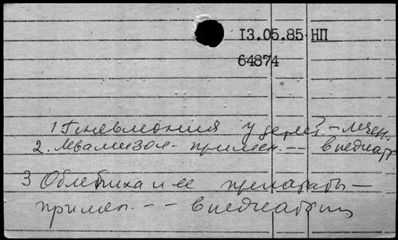 13.05.85 НП
64874
1 Пневмония у детей - лечен.
2. Левамизол - примен. -- в педиатр
3 Облепиха и ее препараты -
примен. -- в педиатрии